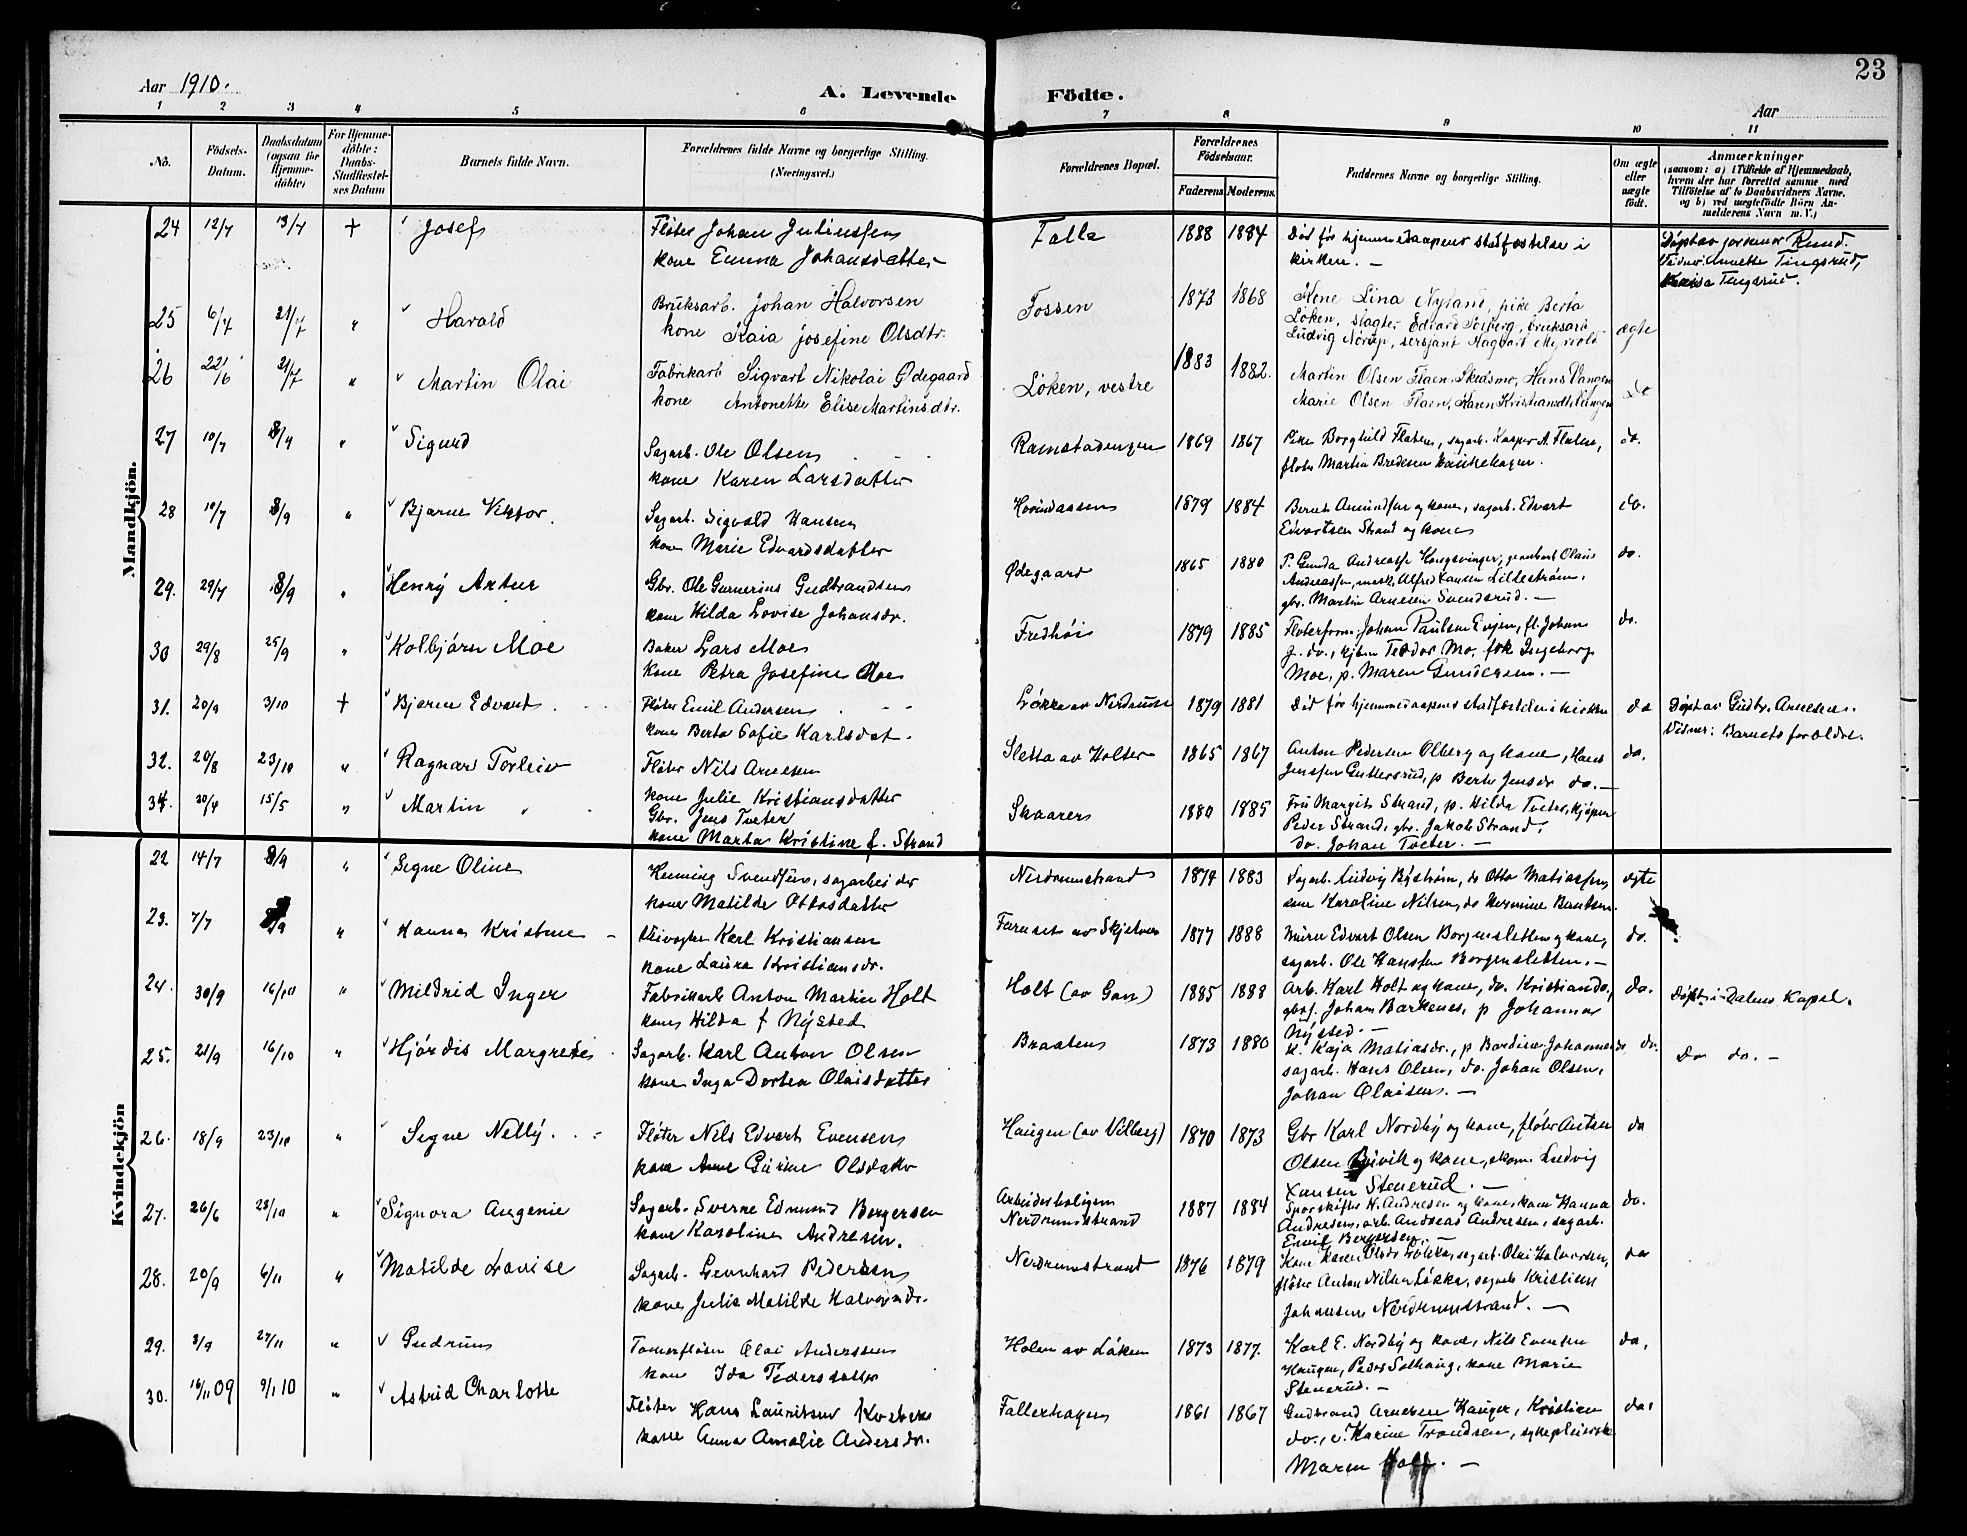 23
Aar 1910.
A. Levende Födte.
Aar
1 2 3 4 5 6 7 8 9 10 11
No. Födsels-Datum. Daabsdatum (ogsaa for Hjemme-döbte) For Hjemme-döbte: Daabs-Stadfæstel-ses Datum Barnets fulde Navn. Forældrenes fulde Navne og borgerlige Stilling. (Næringsvei.) Forældrenes Bopæl. Forældrenes Födselsaar. Faderens Moderens. Faddernes Navne og borgerlige Stilling. Om ægte eller uægte födt. Anmærkninger (saasom: a) i Tilfælde af Hjemmedaab, hvem der har forrettet samme med Tilföielse af to Daabsvidners Navne, og b) ved uægtefödte Börn Anmelderens Navn m. V.)
Mandkjön.
24 12/7 13/7 + Josef Fløter Johan Juliussen Falla 1888 1884 Død før hjemmedaapens stadfæstelse i
kone Emma Johansdatter kirken. —
Vidner: Annette Tingsrud,
25 6/7 21/7 " Harald Bruksarb. Johan Halvorsen Fossen 1873 1868 Kone Lina Nyland, pike Berta
kone Kaia Josefine Olsdtr. Løken, slagter Edvard Solberg, bruksarb ægte
Ludvig Nórup, sersjant Hagbart Myrvold
26 22/6 21/7 " Martin Olai Fabrikarb Sigvart Nikolai Ødegaard Løken, vestre 1883 1882. Martin Olsen Flaen, Skedsmo, Hans Vangen
kone Antonette Elise Martinsdtr. Marie Olsen Flaen, Karen Kristiansdtr Vangen Do
27 10/7 " Sigurd Sagarb. Ole Olsen Ramstadengen 1869 1867 Pike Borghild Flaten, sagarb. Kasper A. Flaten, do.
kone Karen Larsdatter fløter Martin Bredesen
28 10/7 8/9 " Bjarne Viktor. Sagarb. Sigvald Hansen 1879 1884 Bernt Amundsen og kone, sagarb. Edvart do.
kone Marie Edvardsdatter Edvartsen Strand og kone
29. 29/7 8/9 " Henry Artur Gbr. Ole Gunnerius Gudbrandsen Ødegaard 1865 1880 P. Gunda Andreasse Kongsvinger, Olaus do.
kone Hilda Lovise Johansdr. Andreassen, mask. Alfred Hansen Lillestrøm,
gbr. Martin Arnesen Svendsrud. —
30 29/8 25/9 " Kolbjørn Moe Baker Lars Moe Fredhøi 1879 1885 Fløterform. Johan Paulsen Evjen, fl. Johan do.
kone Petra Josefine Moe J. do., kjøbm Teodor Mo, frk Ingeborg
Moe, p. Maren Gundersen. —
31. 20/9 3/10 + Bjarne Edvart Fløter Emil Andersen Løkka av Nerdrum 1879 1881 Død før hjemmedaapens stadfæstelse i kirken do Døpt av Gudbr. Arnesen.
kone Berta Sofie Karlsdat. Vidner: Barnets forældre.
32. 20/8 23/10 " Ragnar Torleiv Fløter Nils Arnesen Sletta av Holter 1865 1867 Anton Pedersen Olberg og kone, Hans do.
kone Julie Kristiansdatter Jenssen Guttersrud, p Berte Jensdr do. —
34. 30/4 15/5 " Martin Gbr. Jens Tveter Skaarer 1880 1885 Fru Margit Strand, p. Hilda Tveter, kjøpm
kone Marta Kristine f. Strand Peder Strand, gbr. Jakob Strand,
do. Johan Tveter. —
Kvindekjön
22 14/7 8/9 " Signe Oline Henning Svendsen, sagarbeider Nerdrumstrand 1874 1883 Sagarb. Ludvig Byström, do Otto Matiassen, ægte
kone Matilde Ottosdatter kone Karoline Nilsen, do Hermine Berntsen.
23. 7/7 8/9 " Hanna Kristine Karl Kristiansen Faruset av Skjetven 1877 1888 Murer Edvart Olsen Borgensletten og kone, do.
kone Laura Kristiansdr. sagarb. Ole Hanssen Borgensletten. —
24. 30/9 16/10 " Mildrid Inger Fabrikarb Anton Martin Holt Holt (av Gan) 1885 1888 Arb. Karl Holt og kone, do. Kristian do., do. Døpt i Dalens Kapel.
kone Hilda f Nysted Johan Barkenes, p Johanna
Nysted. —
25. 21/9 16/10 " Hjørdis Margrete Sagarb. Karl Anton Olsen Braaten 1873 1880 K. Kaja Matiasdr., p Bardine Johannesdr do. Do do. —
kone Inga Dortea Olaisdatter sagarb. Hans Olsen, do. Johan Olsen,
Johan Olaisen. —
26. 18/9 23/10 " Signe Nelly. Fløter Nils Edvart Evensen Haugen (av Vilberg) 1870 1873 Gbr Karl Nordby og kone, fløter Anton do
kone Anne Gurine Olsdatr Olsen og kone, skom. Ludvig
Hansen Stenerud. —
27. 26/6 23/10 " Signora Augenie Sagarb. Sverre Edmund Borgersen Arbeiderboligen 1887 1884 Sporskifter H. Andresen og kone, kone Hanna do.
kone Karoline Andresen. Nerdrumstrand Andresen, arb. Andreas Andresen, sagarb.
Emil Borgersen. —
28. 20/9 6/11 " Matilde Lovise Sagarb. Leonhard Pedersen Nerdrumstrand 1876 1879 Kone Karen Olsdr Løkka, sagarb. Olai Halvorsen, do
kone Julie Matilde Halvorsdr. fløter Anton Nilsen Løkka, sagarb Kristian
Johansen Nerdrumstrand. —
29. 2/9 27/11 " Gudrun Tømmerfløter Olai Anderssen Holen av Løken 1873 1877. Karl E. Nordby og kone, Nils Evensen do.
kone Ida Pedersdatter Haugen, Peder Solhaug, kone Marie
Stenerud. —
30. 16/11 09 9/1 10 " Astrid Charlotte Fløter Hans Lauritsen Fallerhagen 1861 1867 Gudbrand Arnesen Hauger, Kristian do.
kone Anna Amalie Andersdr. do., e. Karine Trondsen, sykepleierske
Maren —